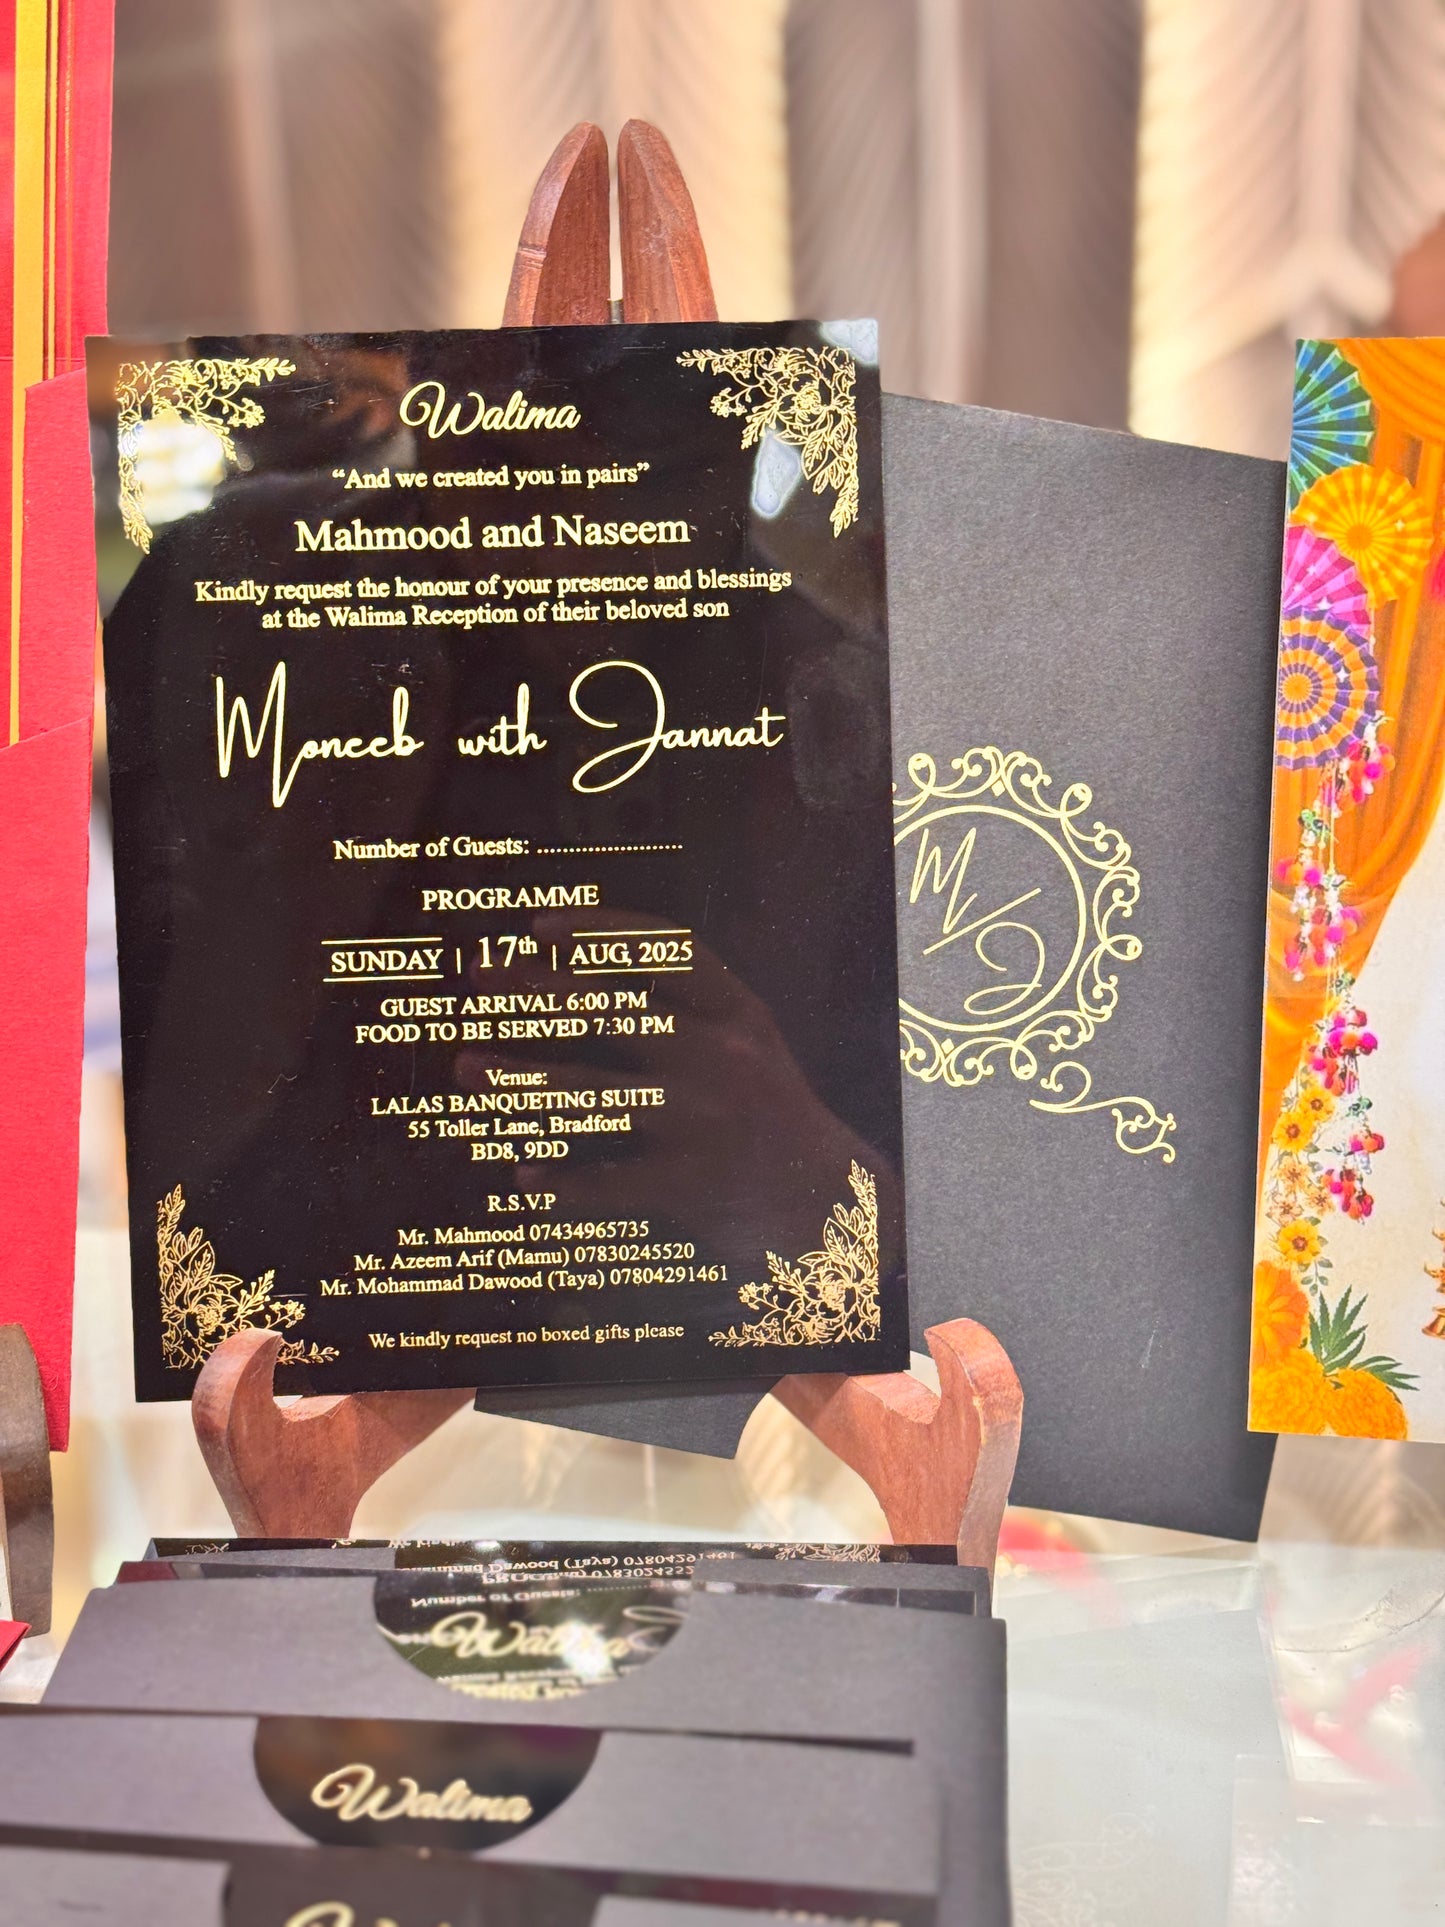 Walima
“And we created you in pairs”
Mahmood and Naseem
Kindly request the honour of your presence and blessings
at the Walima Reception of their beloved son
Moneeb with Jannat
Number of Guests: .......................
PROGRAMME
SUNDAY | 17th | AUG, 2025
GUEST ARRIVAL 6:00 PM
FOOD TO BE SERVED 7:30 PM
Venue:
LALAS BANQUETING SUITE
55 Toller Lane, Bradford
BD8, 9DD
R.S.V.P
Mr. Mahmood 07434965735
Mr. Azeem Arif (Mamu) 07830245520
Mr. Mohammad Dawood (Taya) 07804291461
We kindly request no boxed gifts please
M/J
Dawood (Taya) 07804291461
Number of Guests:
Walima
Walima